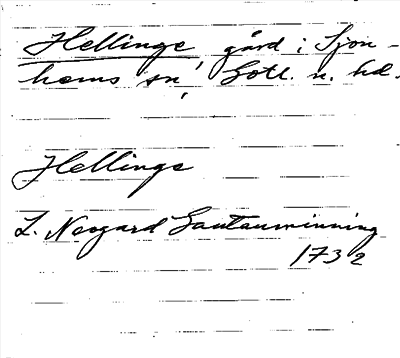 Hellinge gård i Sjon-
hems sn, Gotl. n. hd.
Hellinge
L. Neogard Gautauminning
1732